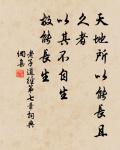 天地所以能長且
久者
以其不自生
故能長生
老子道德經第七章詞典
網集